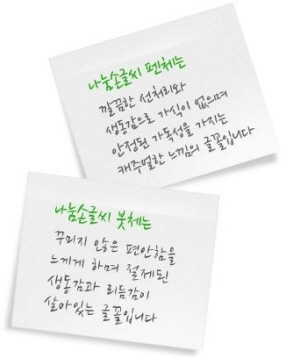 나눔손글씨 펜체는
깔끔한 선처리와
생동감으로 가식이 없으며
안정된 가독성을 가지는
캐주얼한 느낌의 글꼴입니다
나눔손글씨 붓체는
꾸미지 않은 편안함을
느끼게 하며 절제된
생동감과 리듬감이
살아있는 글꼴입니다